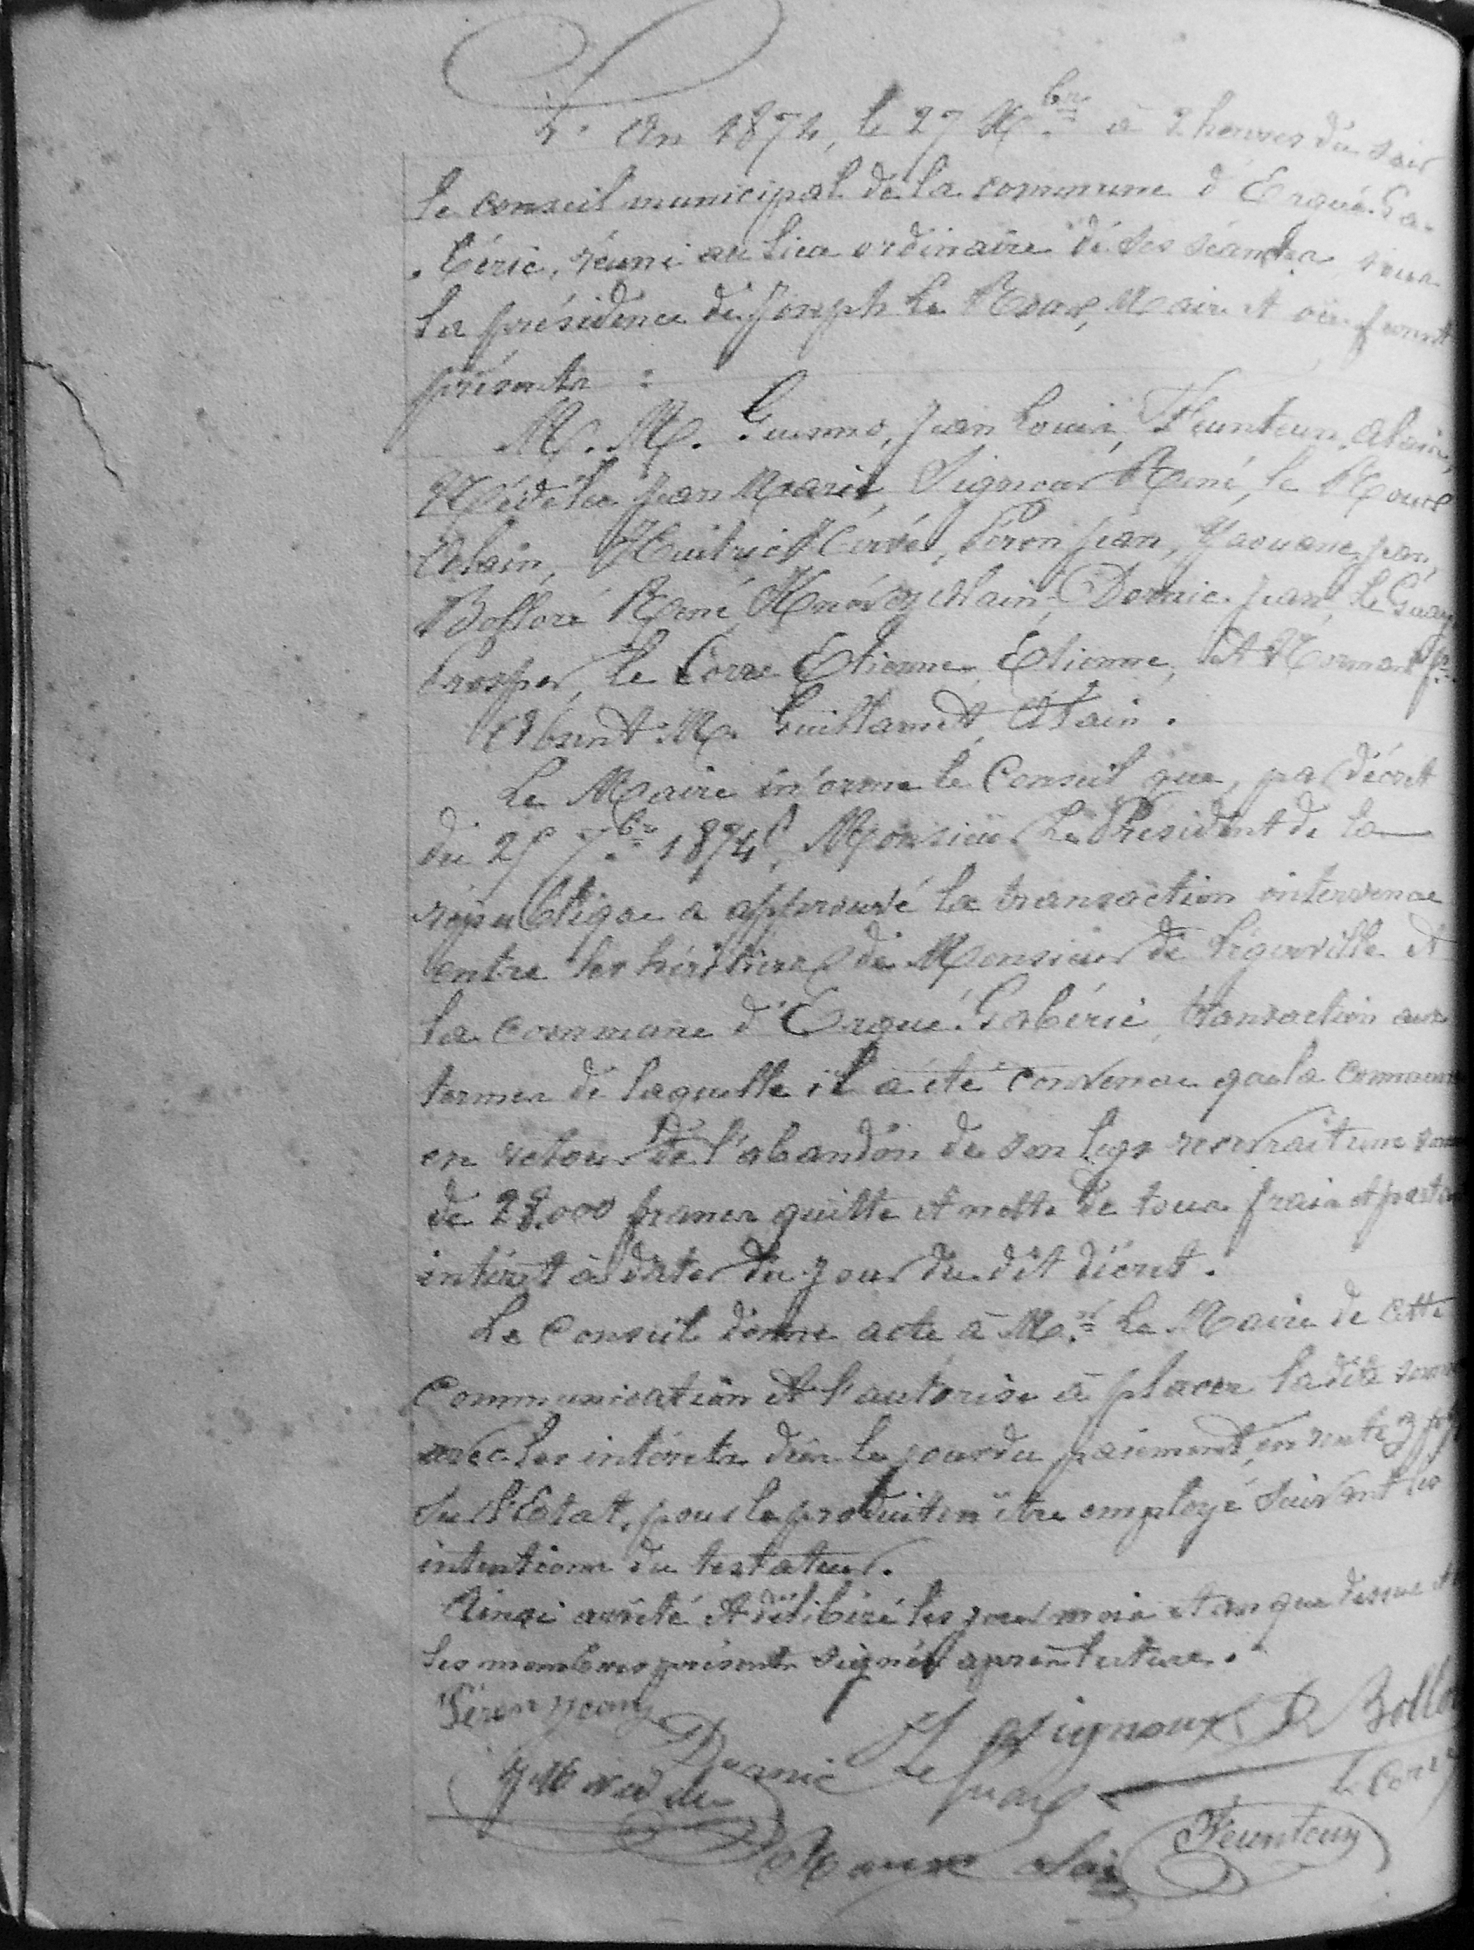 L'An 1874, le 27 Xbre à 2 heures du soir
le conseil municipal de la commune d'Ergué-Ga-
-béric, réuni au lieu ordinaire de ses séances sous
la présidence de Joseph Le Roux, Maire et où furent
présents :
M. M. Guenno, Jean Louis, Feunteun, Alain,
Jean Marie, Signour René, le Roux
Alain, Huitric Hervé, Péron Jean, Yaouanc Jean,
Bolloré René, Alain, Jean, Le Guay
Prosper, le Corre Etienne, Etienne, et
Absent M. Guillamet Alain.
Le Maire informe le Conseil que, par décret
du 25 7bre 1874, Monsieur Le Président de la
république a approuvé la transaction intervenue
entre les héritiers de Monsieur de Légerville et
la commune d'Ergué-Gabéric, transaction aux
termes de laquelle il a été convenu que la commune
en retour de l'abandon de son legs recevrait une
de 28.000 francs quitte et nette de tous frais et
intérêt à dater du jour du dit décret.
Le Conseil donne acte à Mr Le Maire de cette
communication et l'autorise à placer la dite
avec les intérêts dès le jour du paiement, en rente 3
sur l'Etat, pour le produit en être employé suivant les
intentions du testateur.
Ainsi arrêté et délibéré les jour mois et an que dessus et
les membres présents signés après lecture.
Péron Jean Signour R Bollo
Le Guay Le Corre
Roux Alain Feunteun